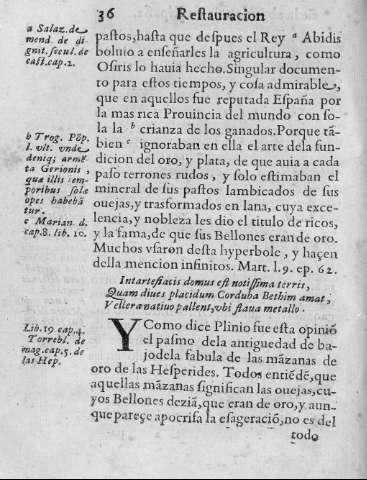 36 Restauracion
a Salaz. de
mend. de di
gnit. secul. de
cast. cap. 2.
pastos, hasta que despues el Rey ª Abidis
boluio a enseñarles la agricultura, como
Osiris lo hauia hecho. Singular documen-
to para estos tiempos, y cosa admirable,
que en aquellos fue reputada España por
la mas rica Prouincia del mundo con so-
la la ᵇ crianza de los ganados. Porque tã-
bien ᶜ ignoraban en ella el arte dela fun-
dicion del oro, y plata, de que auia a cada
paso terrones rudos, y solo estimaban el
mineral de sus pastos lambicados de sus
ouejas, y trasformados en lana, cuya exce-
lencia, y nobleza les dio el titulo de ricos,
y la fama, de que sus Bellones eran de oro.
Muchos vsaron desta hyperbole, y haçen
della mencion infinitos. Mart. l. 9. ep. 62.
b Trog. Põp.
l. vlt. vnde
deniq; armẽ
ta Gerionis,
quæ illis tem
poribus solæ
opes habebã
tur.
c Marian. d.
cap. 8. lib. 10.
Intartessiacis domus est notissima terris,
Quam diues placidum Corduba Bethim amat,
Vellera natiuo pallent, vbi flaua metallo.
Lib. 19. cap. 4.
Torrebl. de
mag. cap. 5. de
las Hep.
Y Como dice Plinio fue esta opinió
el pasmo dela antiguedad de ba-
jodela fabula de las mãzanas de
oro de las Hesperides. Todos entiẽdẽ, que
aquellas mãzanas significan las ouejas, cu-
yos Bellones deziã, que eran de oro, y aun-
que pareçe apocrifa la esageraciõ, no es del
todo